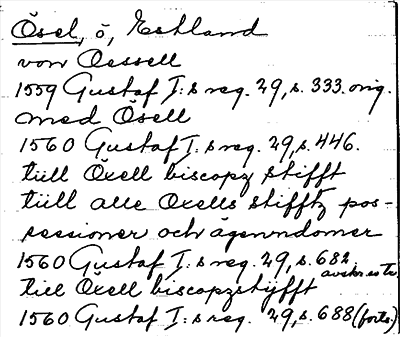 Ösel, ö, Estland
von Oessell
1559 Gustaf I:s reg. 29, s. 333. orig.
med Ösell
1560 Gustaf I:s reg. 29, s. 446.
tiill Öxell biscopz stifft
tiill alle Oxells stifftz pos-
sessioner och ägenndomer
1560 Gustaf I:s reg. 29, s. 682
till Öxell biscopzstyfft
1560 Gustaf I:s reg. 29, s. 688 (forts.)